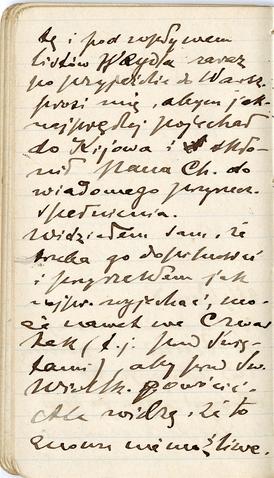 tę i pod wpływem
listów Wł. zaraz
po przyjeździe do Warsz.
prosi mię, abym jak-
najprędzej pojechał
do Kijowa i skło-
nił Pana Ch. do
wiadomego
spełnienia.
Widziałem sam, że
trzeba go dopilnować
i przyrzekłem jak
najpr. wyjechać, mo-
że nawet we Czwar-
tek (t.j. pod Świę-
tami) aby pod Św.
Wielk. powrócić.
Ale widzę, że to
znowu niemożliwe.